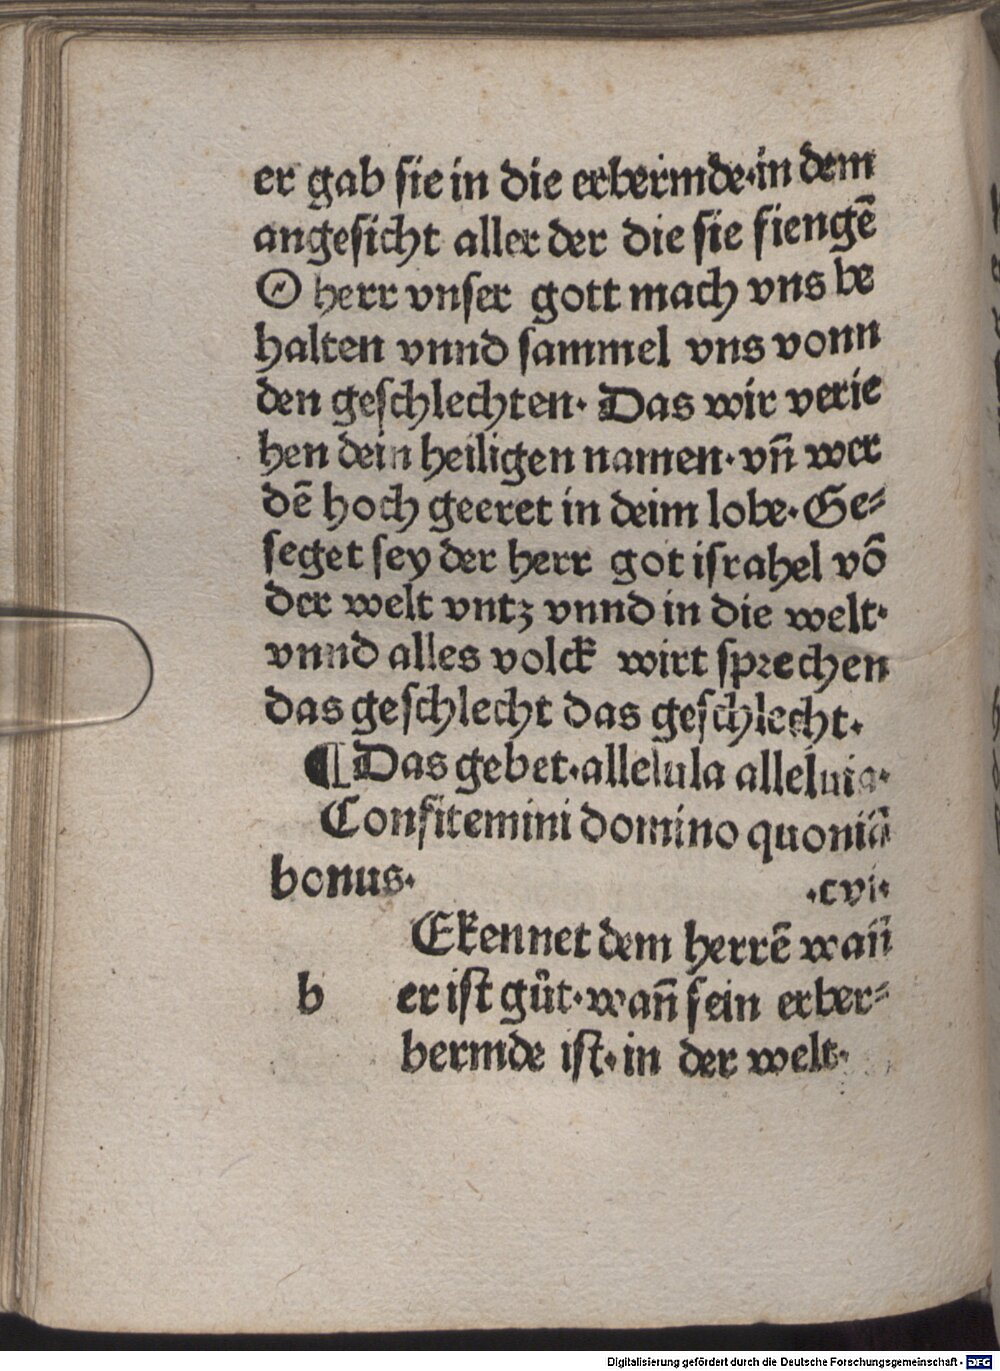 er gab sie in die erbermde·in dem
angesicht aller der die sie fiengē
O herr vnser gott mach vns be
halten vnnd sammel vns vonn
den geschlechten· Das wir verie
hen dein heiligen namen·vn̄ wer
dē hoch geeret in deim lobe·Ge⸗
seget sey der herr got israhel vō
der welt vntz vnnd in die welt·
vnnd alles volck wirt sprechen
das geschlecht das geschlecht·
¶Das gebet·allelula alleluia·
Confitemini domino quoniā
bonus· ·cvi·
Ekennet dem herrē wan̄
b er ist gůt·wan̄ sein erber⸗
bermde ist·in der welt·
Digitalisierung gefördert durch die Deutsche Forschungsgemeinschaft - DFG